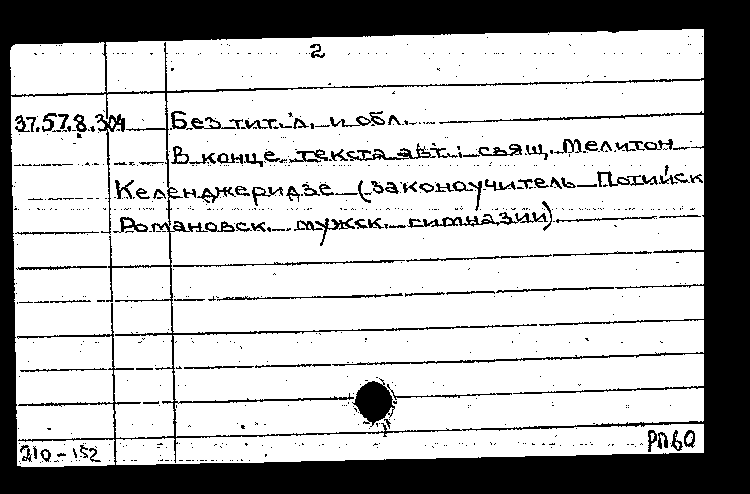 2
37.57.8.304 Без тит. л. и обл.
В конце текста авт.: свящ. Мелитон
Келенджеридзе (законоучитель Потийск
Романовск. мужск. гимназии).
210-152
РПбQ